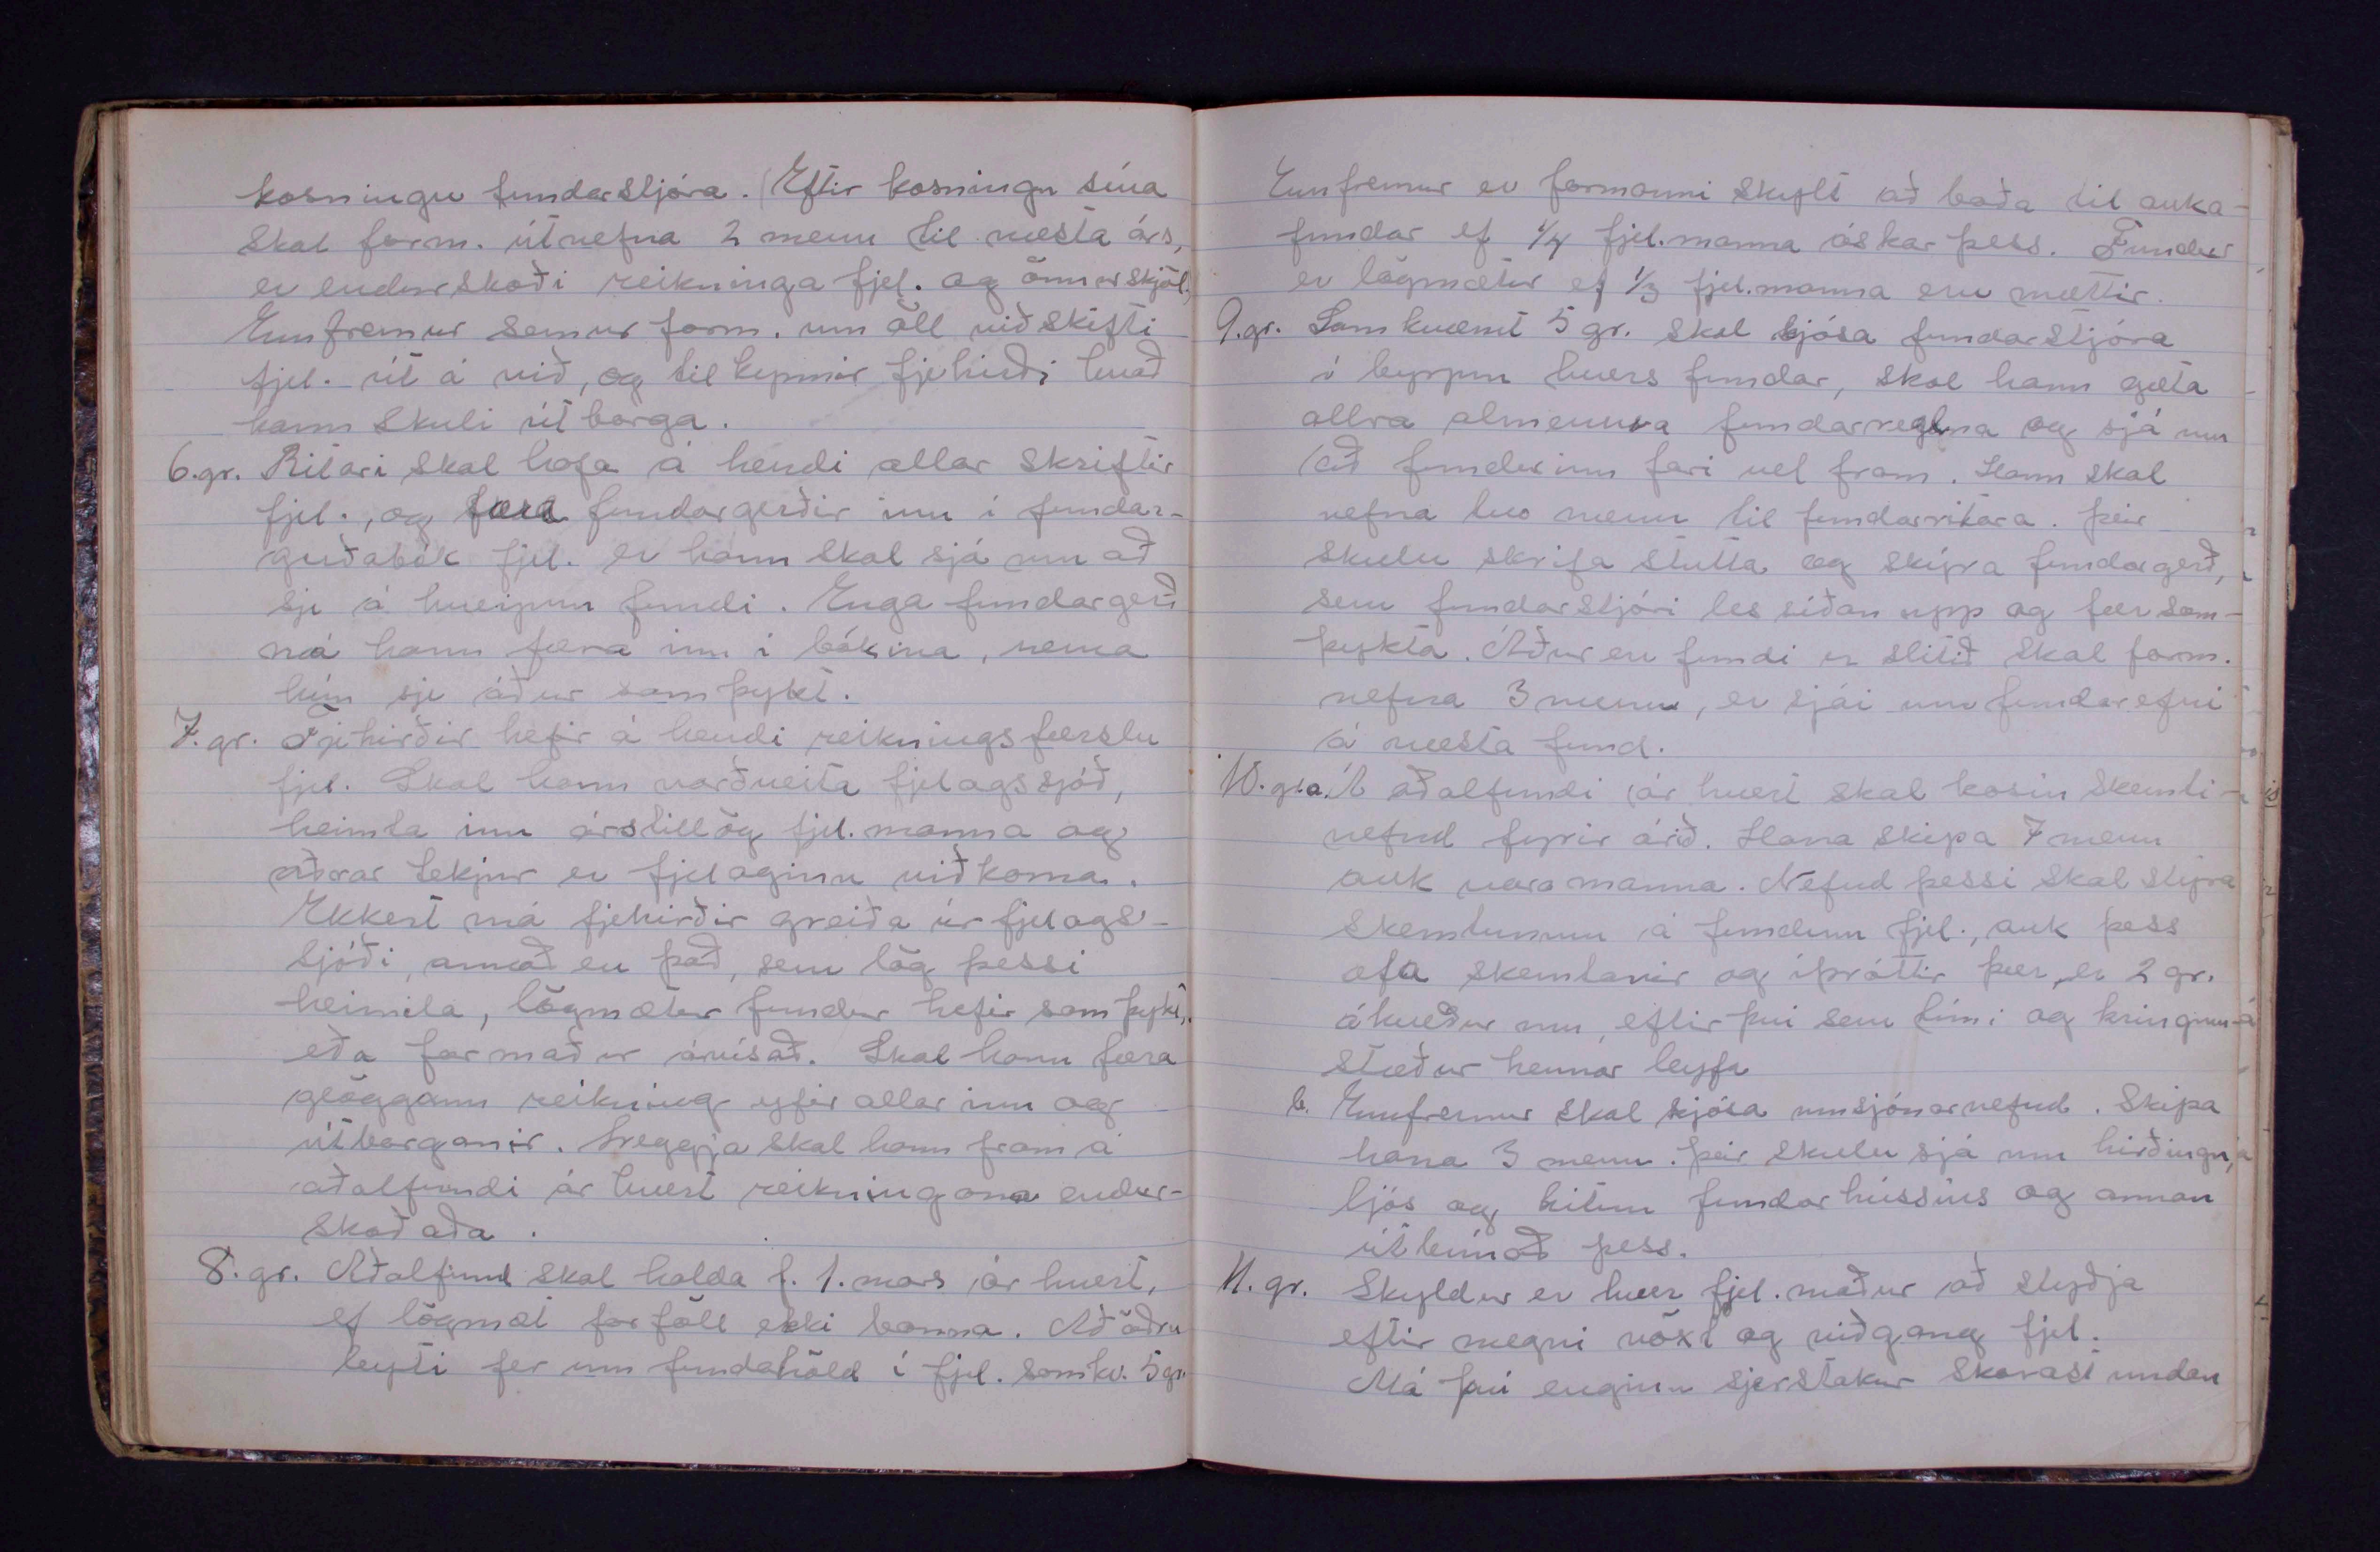 kosningu fundarstjóra. (Eftir kosningu sína
skal form. útnefna 2 menn til næsta árs,
er endurskoði reikninga fjel. og önnur skjöl.)
Ennfremur semur form. um öll viðskifti
fjel. út á við, og tilkynnir fjehirði hvað
hann skuli útborga.
6. gr. Ritari skal hafa á hendi allar skriftir
fjel., og færa fundargerðir inn í fundar-
gerðabók fjel. er hann skal sjá um að
sje á hverjum fundi. Enga fundargerð
má hann færa inn í bókina, nema
hún sje áður samþykt.
7. gr. Fjehirðir hefir á hendi reikningsfærslu
fjel. Skal hann varðveita fjelagssjóð,
heimta inn árstillög fjel.manna og
aðrar tekjur er fjelaginu viðkoma.
Ekkert má fjehirðir greiða úr fjelags-
sjóði, annað en það, sem lög þessi
heimila, lögmætur fundur hefir samþykt,
eða formaður ávísað. Skal hann færa
glöggann reikning yfir allar inn og
útborganir. Leggja skal hann fram á
aðalfundi ár hvert reikningana endur-
skoðaða.
8. gr. Aðalfund skal halda f. 1. mars ár hvert,
ef lögmæt forföll ekki banna. Að öðru
leyti fer um fundahöld í fjel. samkv. 5 gr.
Ennfremur er formanni skylt að boða til auka-
fundar ef 1/4 fjel.manna óskar þess. Fundur
er lögmætur ef 1/3 fjel.manna eru mættir.
9. gr. Samkvæmt 5 gr. skal kjósa fundarstjóra
í byrjun hvers fundar, skal hann gæta
allra almennra fundarreglna og sjá um
að fundurinn fari vel fram. Hann skal
nefna tvo menn til fundarritara. Þeir
skulu skrifa stutta og skýra fundargerð,
sem fundarstjóri les síðan upp og fær sam-
þykta. Áður en fundi er slitið skal form.
nefna 3 menn, er sjái um fundarefni
á næsta fund.
10. gr. a. Á aðalfundi ár hvert skal kosin skemti-
nefnd fyrir árið. Hana skipa 7 menn
auk varamanna. Nefnd þessi skal stýra
skemtunum á fundum fjel., auk þess
æfa skemtanir og íþróttir þær, er 2 gr.
ákveður um, eftir því sem tími og kringum-
stæður hennar leyfa
b. Ennfremur skal kjósa umsjónarnefnd. Skipa
hana 3 menn. Þeir skulu sjá um hirðingu,
ljós og hitun fundarhússins og annan
útbúnað þess.
11. gr. Skyldur er hver fjel.maður að styðja
eftir megni vöxt og viðgang fjel.
Má því enginn sjerstakur skorast undan